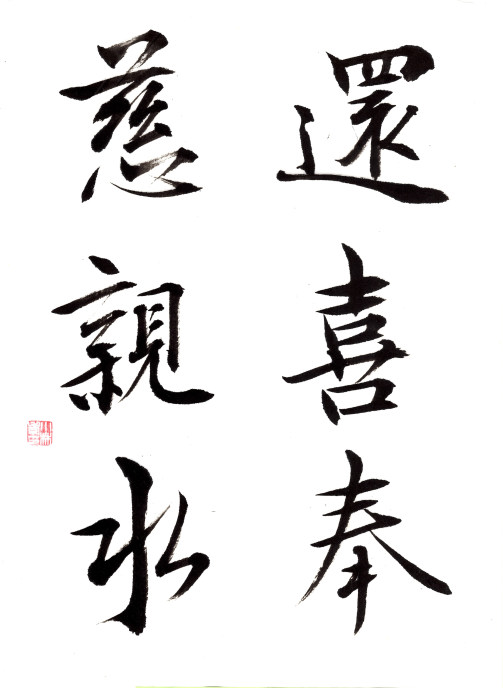 還喜奉
慈親水